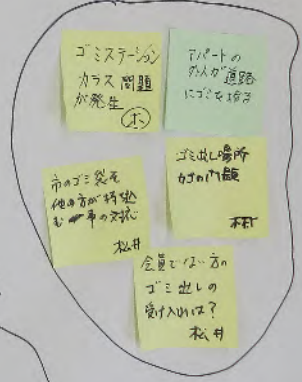 ゴミステーション
カラス問題
が発生
ホ
アパートの
が道路
にゴミを捨る
ゴミ出し場所
市のゴミ袋を
他の方が持込
む 市の対応
松井
会員でない方の
ゴミ出しの
受け入れは?
松井